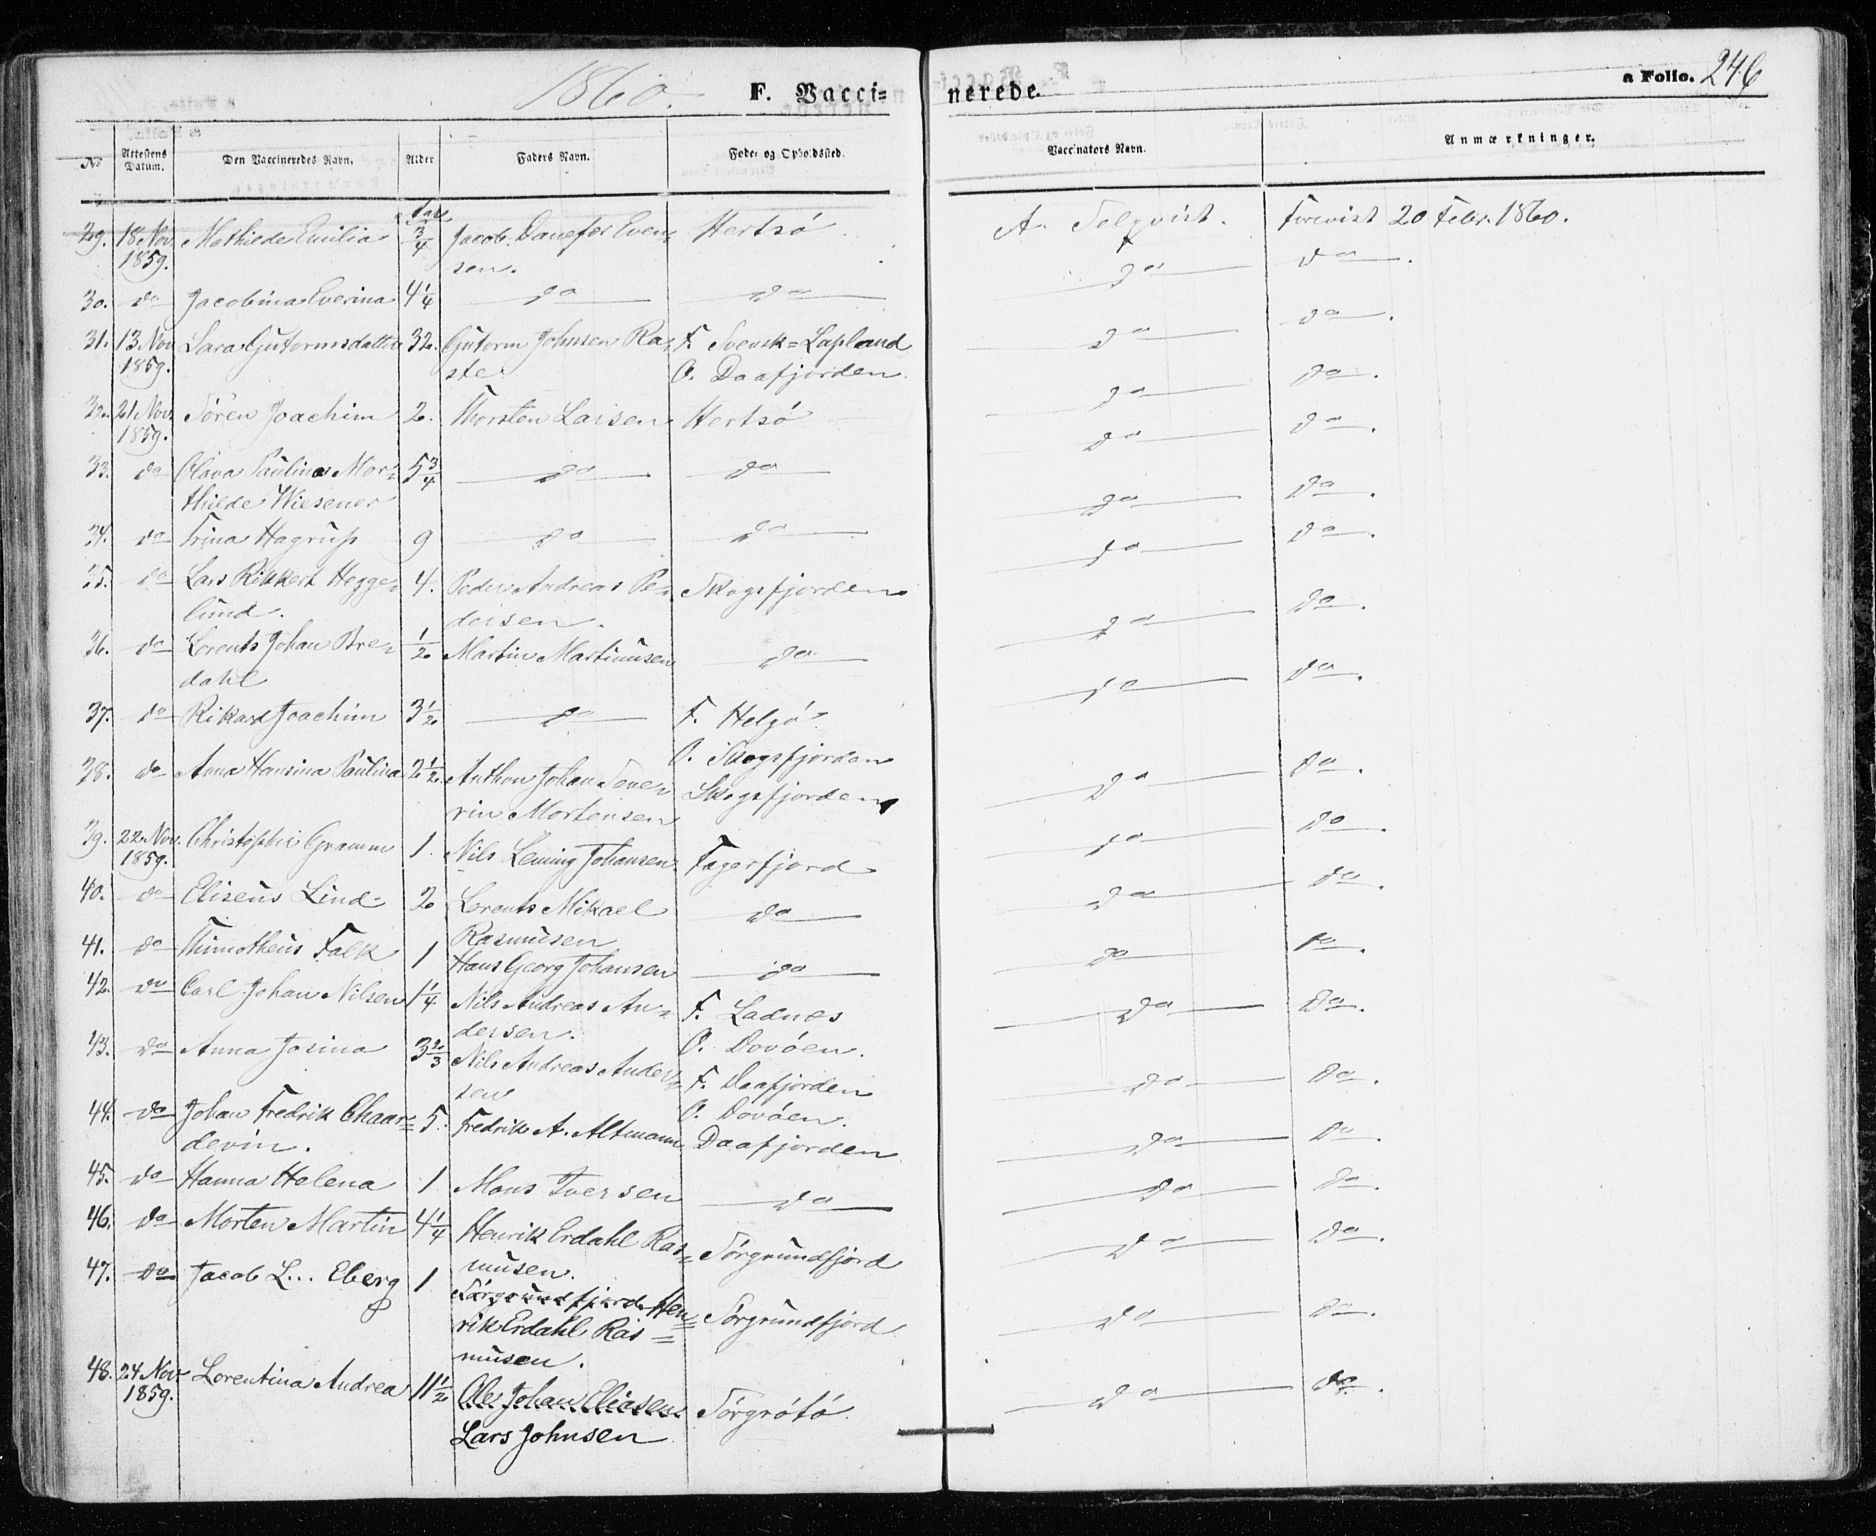 1860. F. Vaccinerede. a Folio. 246
No Attestens Datum. Den Vaccineredes Navn. Alder Faders Navn. Føde- og Opholdssted. Vaccinators Navn. Anmærkninger.
29. 18 Nov. 1859. Mathilde Emilia 3/4 Jacob Danefer Evensen. Hertsö A. Forevist 20 Febr. 1860.
30. do Jacobina Everina 4 1/4 do do do do.
31. 13 Nov 1859. Sara Gutormsdatter 32. Gutorm Johnsen Raste F. Svensk=Lapland O. Daafjorden. do do.
32. 21 Nov. 1859. Sören Joachim 2. Thorsten Larsen Hertsö do do.
33. do Olava Paulina Morthilde Wiesener 5 3/4 do do do do.
34. do Trina Hagrup 9 do do do do.
35. do Lars Rikkert Heggelund. 4. Peder Andreas Pedersen. Skogsfjorden do do.
36. do Lorents Johan Bredahl 1/2 Martin Martinusen do do do.
37. do Rikard Joachim 3 1/2 do F. Helgö. O. Skogsfjorden do do.
38. do Anna Hansina Paulina 2 1/2 Anthon Johan Severin Mortensen Skogsfjorden do do.
39. 22 Nov. 1859. Christopher Gramm 1. Nils Leming Johansen Fagerfjord do do.
40. do Eliseus Lind 2 Lorents Mikael Rasmusen do do do.
41. do Thimotheus Falk 1 Hans Georg Johansen do do do.
42. do Carl Johan Nilsen 1 1/4 Nils Andreas Andersen. F. Ladnæs O. Dovöen. do do.
43. do Anna Josina 3 2/3 Nils Andreas Andersen F. Daafjorden O. Dovöen. do do.
44. do Johan Fredrik Chaardevin. 5. Fredrik A. Altmann Daafjorden do do.
45. do Hanna Helena 1 Mons Iversen do do do.
46. do Morten Martin 4 1/4 Henrik Erdahl Rasmusen. Sörgrundfjord do do.
47. do Jacob L... Eberg 1 Sörgrundfjord Henrik Erdahl Rasmusen. Sörgrundfjord do do.
48. 24 Nov 1859. Lorentina Andrea 11 1/2 Ole Johan Eliasen Lars Johnsen Sörgrötö. do do.